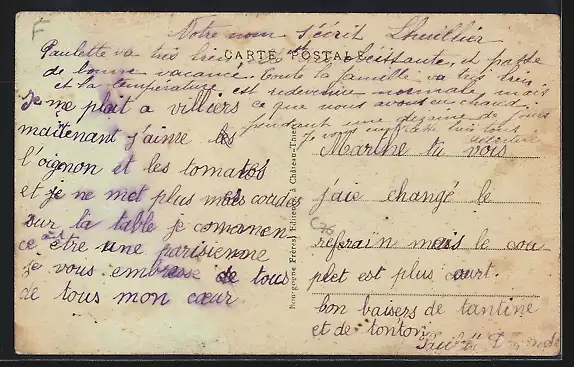 Notre nom s'écrit Lhuillier
Paulette va très bien, est obéissante, et passe
CARTE POSTALE
de bonne vacance. Toute la famille va très bien
et la température est redevenue normale, mais
ce que nous avons eu chaud
pendant une dizaine de jours
Je vous embrasse très tous
Je me plait a villiers
maitenant j'aime les
l'oignon et les tomatos
et je ne met plus mes coudes
sur la table je commen-
ce être une parisienne
je vous embrasse de tous
de tous mon cœur
Bourgogne Frères, Editeurs à Château-Thierry
Marine tu vois
j'aie changé le
referain mais le cou-
plet est plus court.
bon baisers de tantine
et de tonton